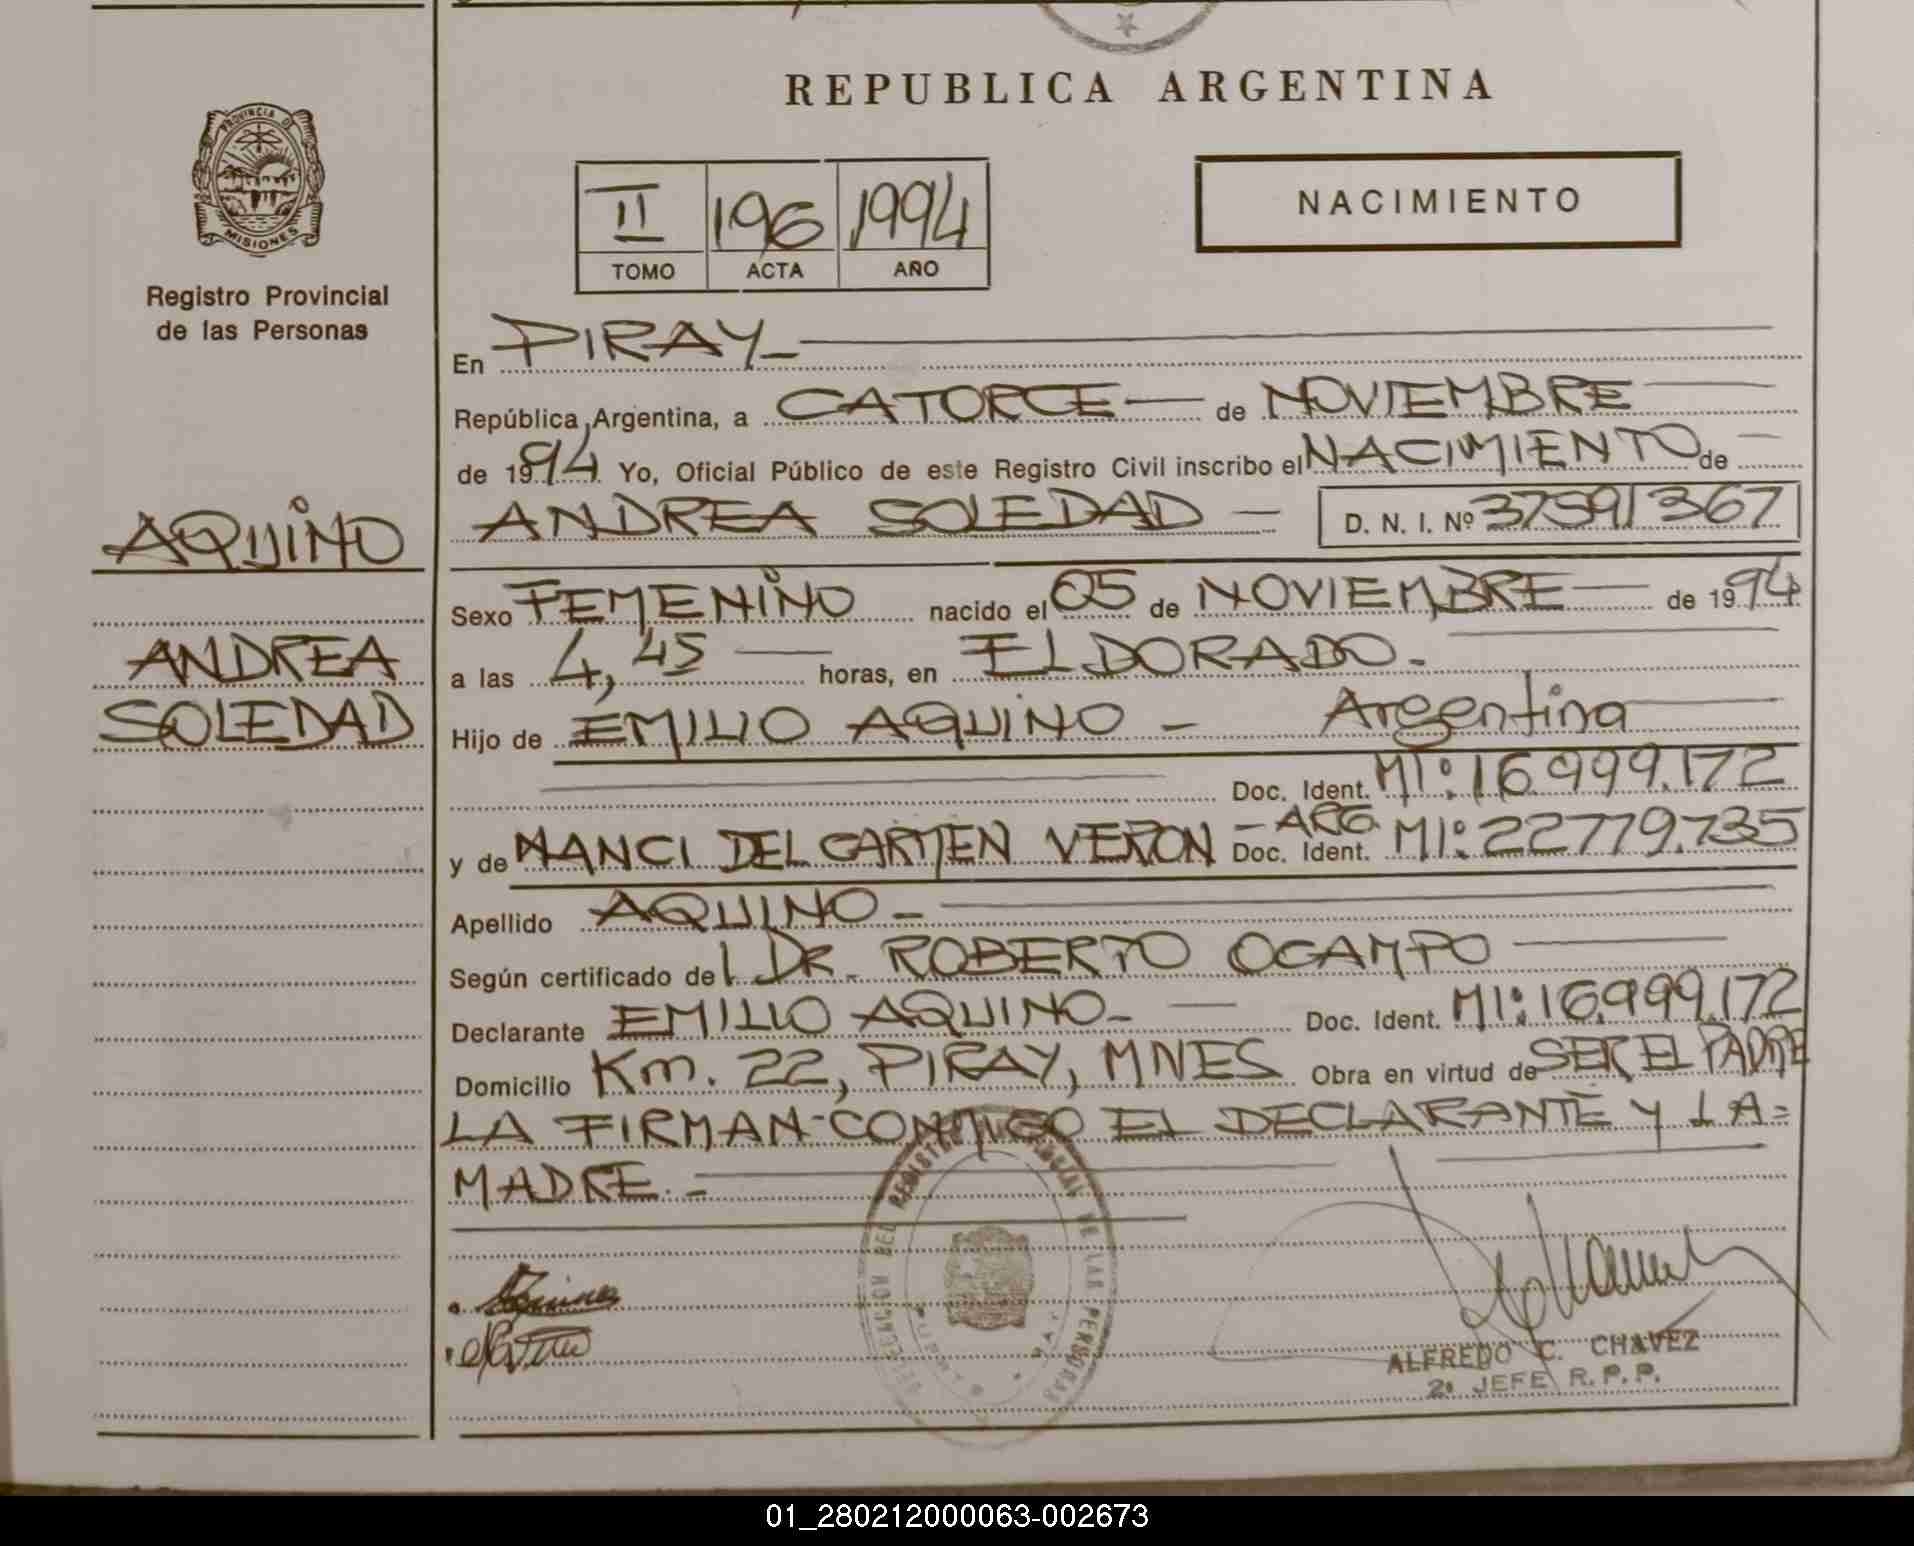 REPUBLICA ARGENTINA
PROVINCIA DE
MISIONES
Registro Provincial
de las Personas
II 196 1994
TOMO ACTA AÑO
NACIMIENTO
En PIRAY
República Argentina, a CATORCE de NOVIEMBRE
de 1994 Yo, Oficial Público de este Registro Civil inscribo el NACIMIENTO de
AQUINO
ANDREA SOLEDAD D. N. I. Nº 37591367
Sexo FEMENINO nacido el 05 de NOVIEMBRE de 1994
ANDREA
a las 4,45 horas, en ELDORADO.
SOLEDAD
Hijo de EMILIO AQUINO - Argentina
Doc. Ident. MI: 16.999.172
y de NANCI DEL CARMEN VERON - ARG. Doc. Ident. MI: 22779.735
Apellido AQUINO -
Según certificado del DR. ROBERTO OCAMPO
Declarante EMILIO AQUINO - Doc. Ident. MI: 16.999.172
Domicilio Km. 22, PIRAY, MNES Obra en virtud de SER EL PADRE
LA FIRMAN CONMIGO EL DECLARANTE Y LA=
MADRE. -
DELEGACION DEL REGISTRO DE LAS PERSONAS
ALFREDO C. CHAVEZ
2º JEFE R. P. P.
01_280212000063-002673